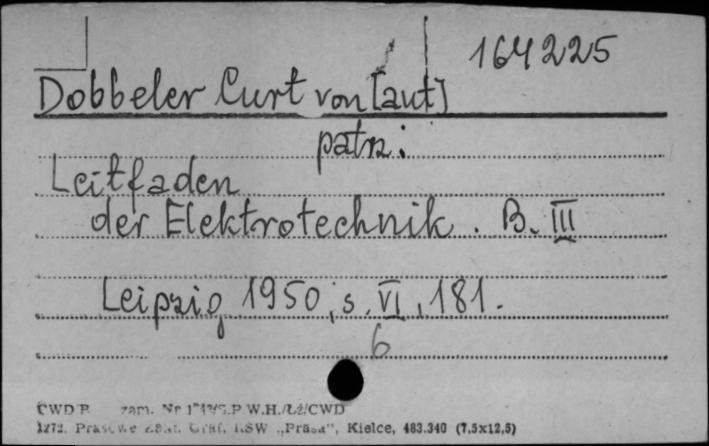 164225
Dobbeler Curt von [aut]
patrz:
Leitfaden
der Elektrotechnik. B. III
Leipzig 1950, s. VI, 181.
6
CWD zam. Nr P.W.H./Łż/CWD
1272. Prasowe Zakł. Graf. RSW „Prasa", Kielce, 483.340 (7,5x12,5)